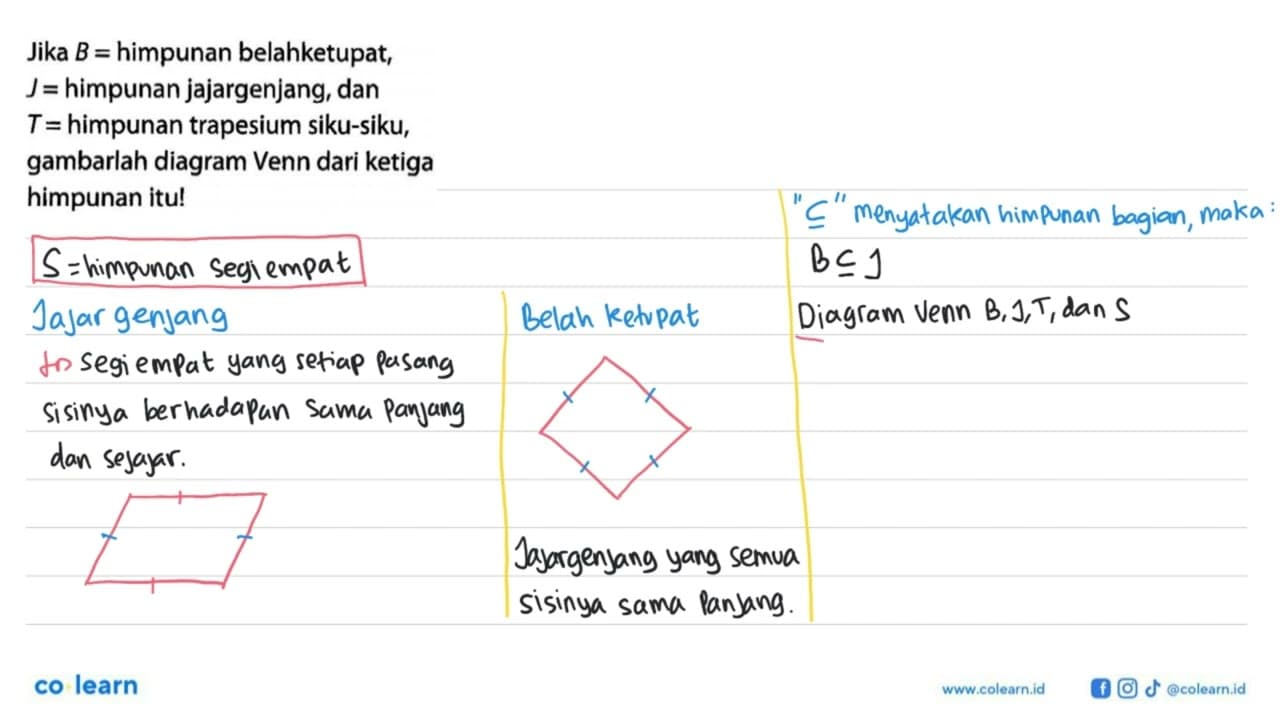 Jika B = himpunan belahketupat,
J = himpunan jajargenjang, dan
T = himpunan trapesium siku-siku,
gambarlah diagram Venn dari ketiga
himpunan itu!
S = himpunan segiempat
Jajargenjang
↳ segiempat yang setiap pasang
sisinya berhadapan sama panjang
dan sejajar.
Belah ketupat
Jajargenjang yang semua
sisinya sama panjang.
"⊆" menyatakan himpunan bagian, maka :
B ⊆ J
Diagram Venn B, J, T, dan S
co learn
www.colearn.id
@colearn.id